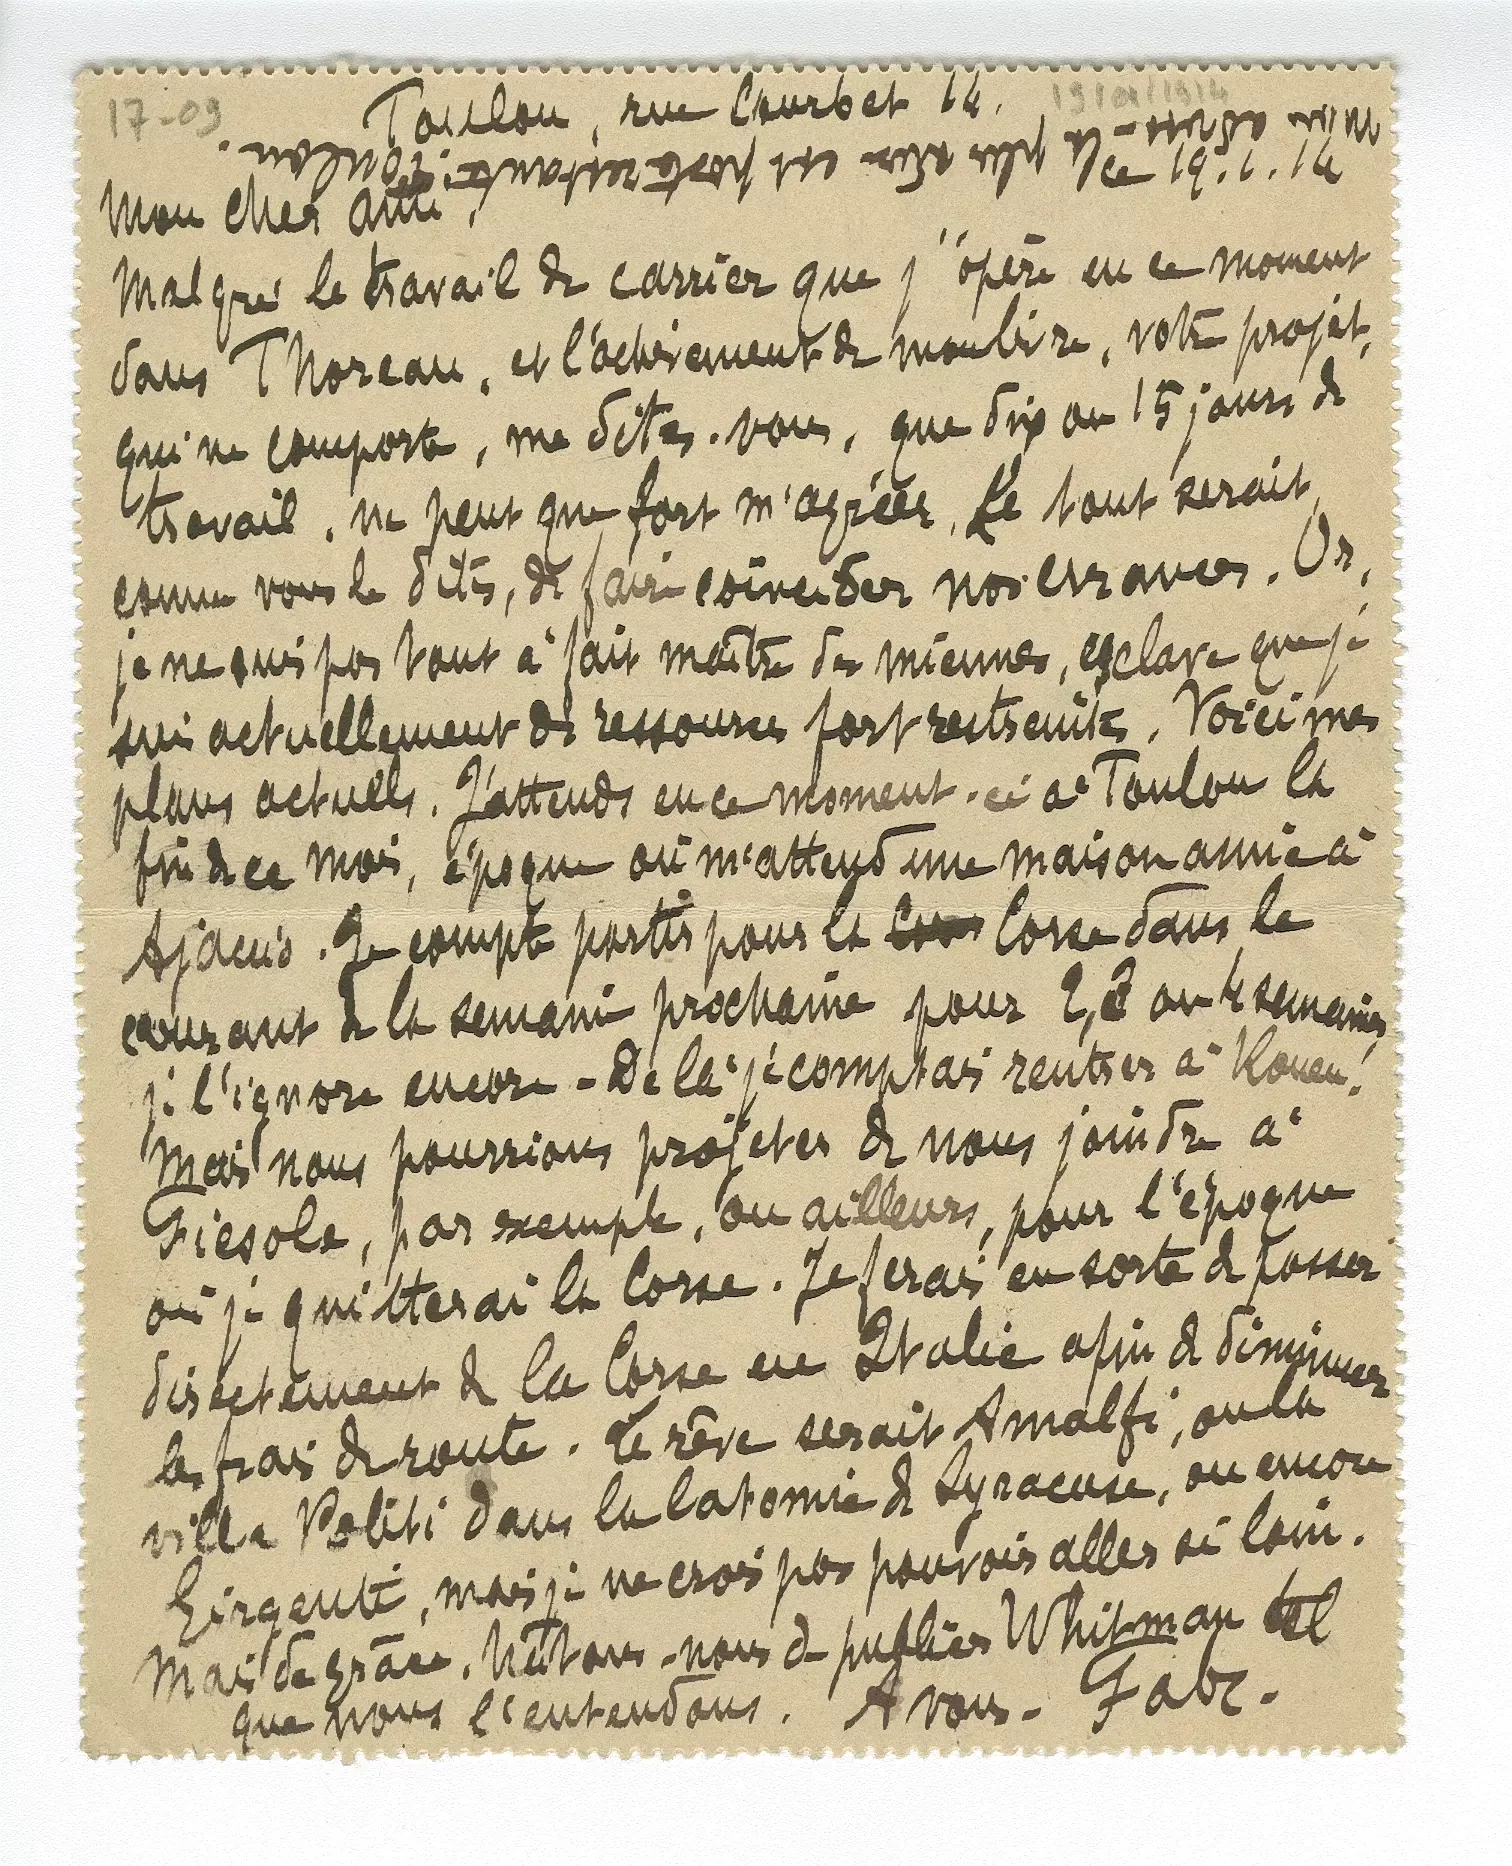 17-09
19/01/1914
Toulon, rue Courbet 14.
Mon adresse la plus sûre est poste restante : Toulon.
ce 19.1.14
Mon cher ami,
Malgré le travail de carrier que j'opère en ce moment
dans Thoreau, et l'achèvement de mon livre, votre projet,
qui ne comporte, me dites-vous, que dix ou 15 jours de
travail, ne peut que fort m'agréer. Le tout serait,
comme vous le dites, de faire coïncider nos errances. Or,
je ne suis pas tout à fait maître des miennes, esclave que je
suis actuellement de ressources fort restreintes. Voici mes
plans actuels. J'attends en ce moment-ci à Toulon la
fin de ce mois, époque où m'attend une maison amie à
Ajaccio. Je compte partir pour la Corse dans le
courant de la semaine prochaine pour 2, 3 ou 4 semaines,
je l'ignore encore - De là je comptais rentrer à Rouen.
Mais nous pourrions projeter de nous joindre à
Fiesole, par exemple, ou ailleurs, pour l'époque
où je quitterai la Corse. Je ferais en sorte de passer
directement de la Corse en Italie afin de diminuer
les frais de route. Le rêve serait Amalfi, ou la
villa Politi dans la latomie de Syracuse, ou encore
Girgenti, mais je ne crois pas pouvoir aller si loin.
Mais de grâce, hâtons-nous de publier Whitman tel
que nous l'entendons. A vous - Fabr.